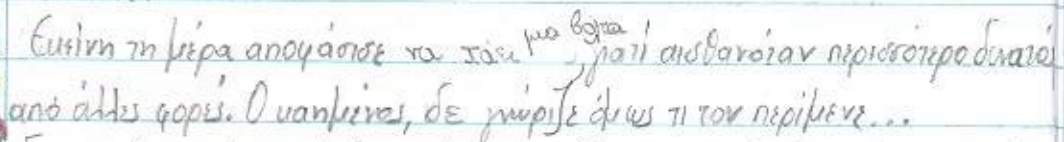 Εκείνη τη μέρα αποφάσισε να πάει μια βόλτα, γιατί αισθανόταν περισσότερο δυνατός
από άλλες φορές. Ο καημένος, δε γνώριζε όμως τι τον περίμενε...